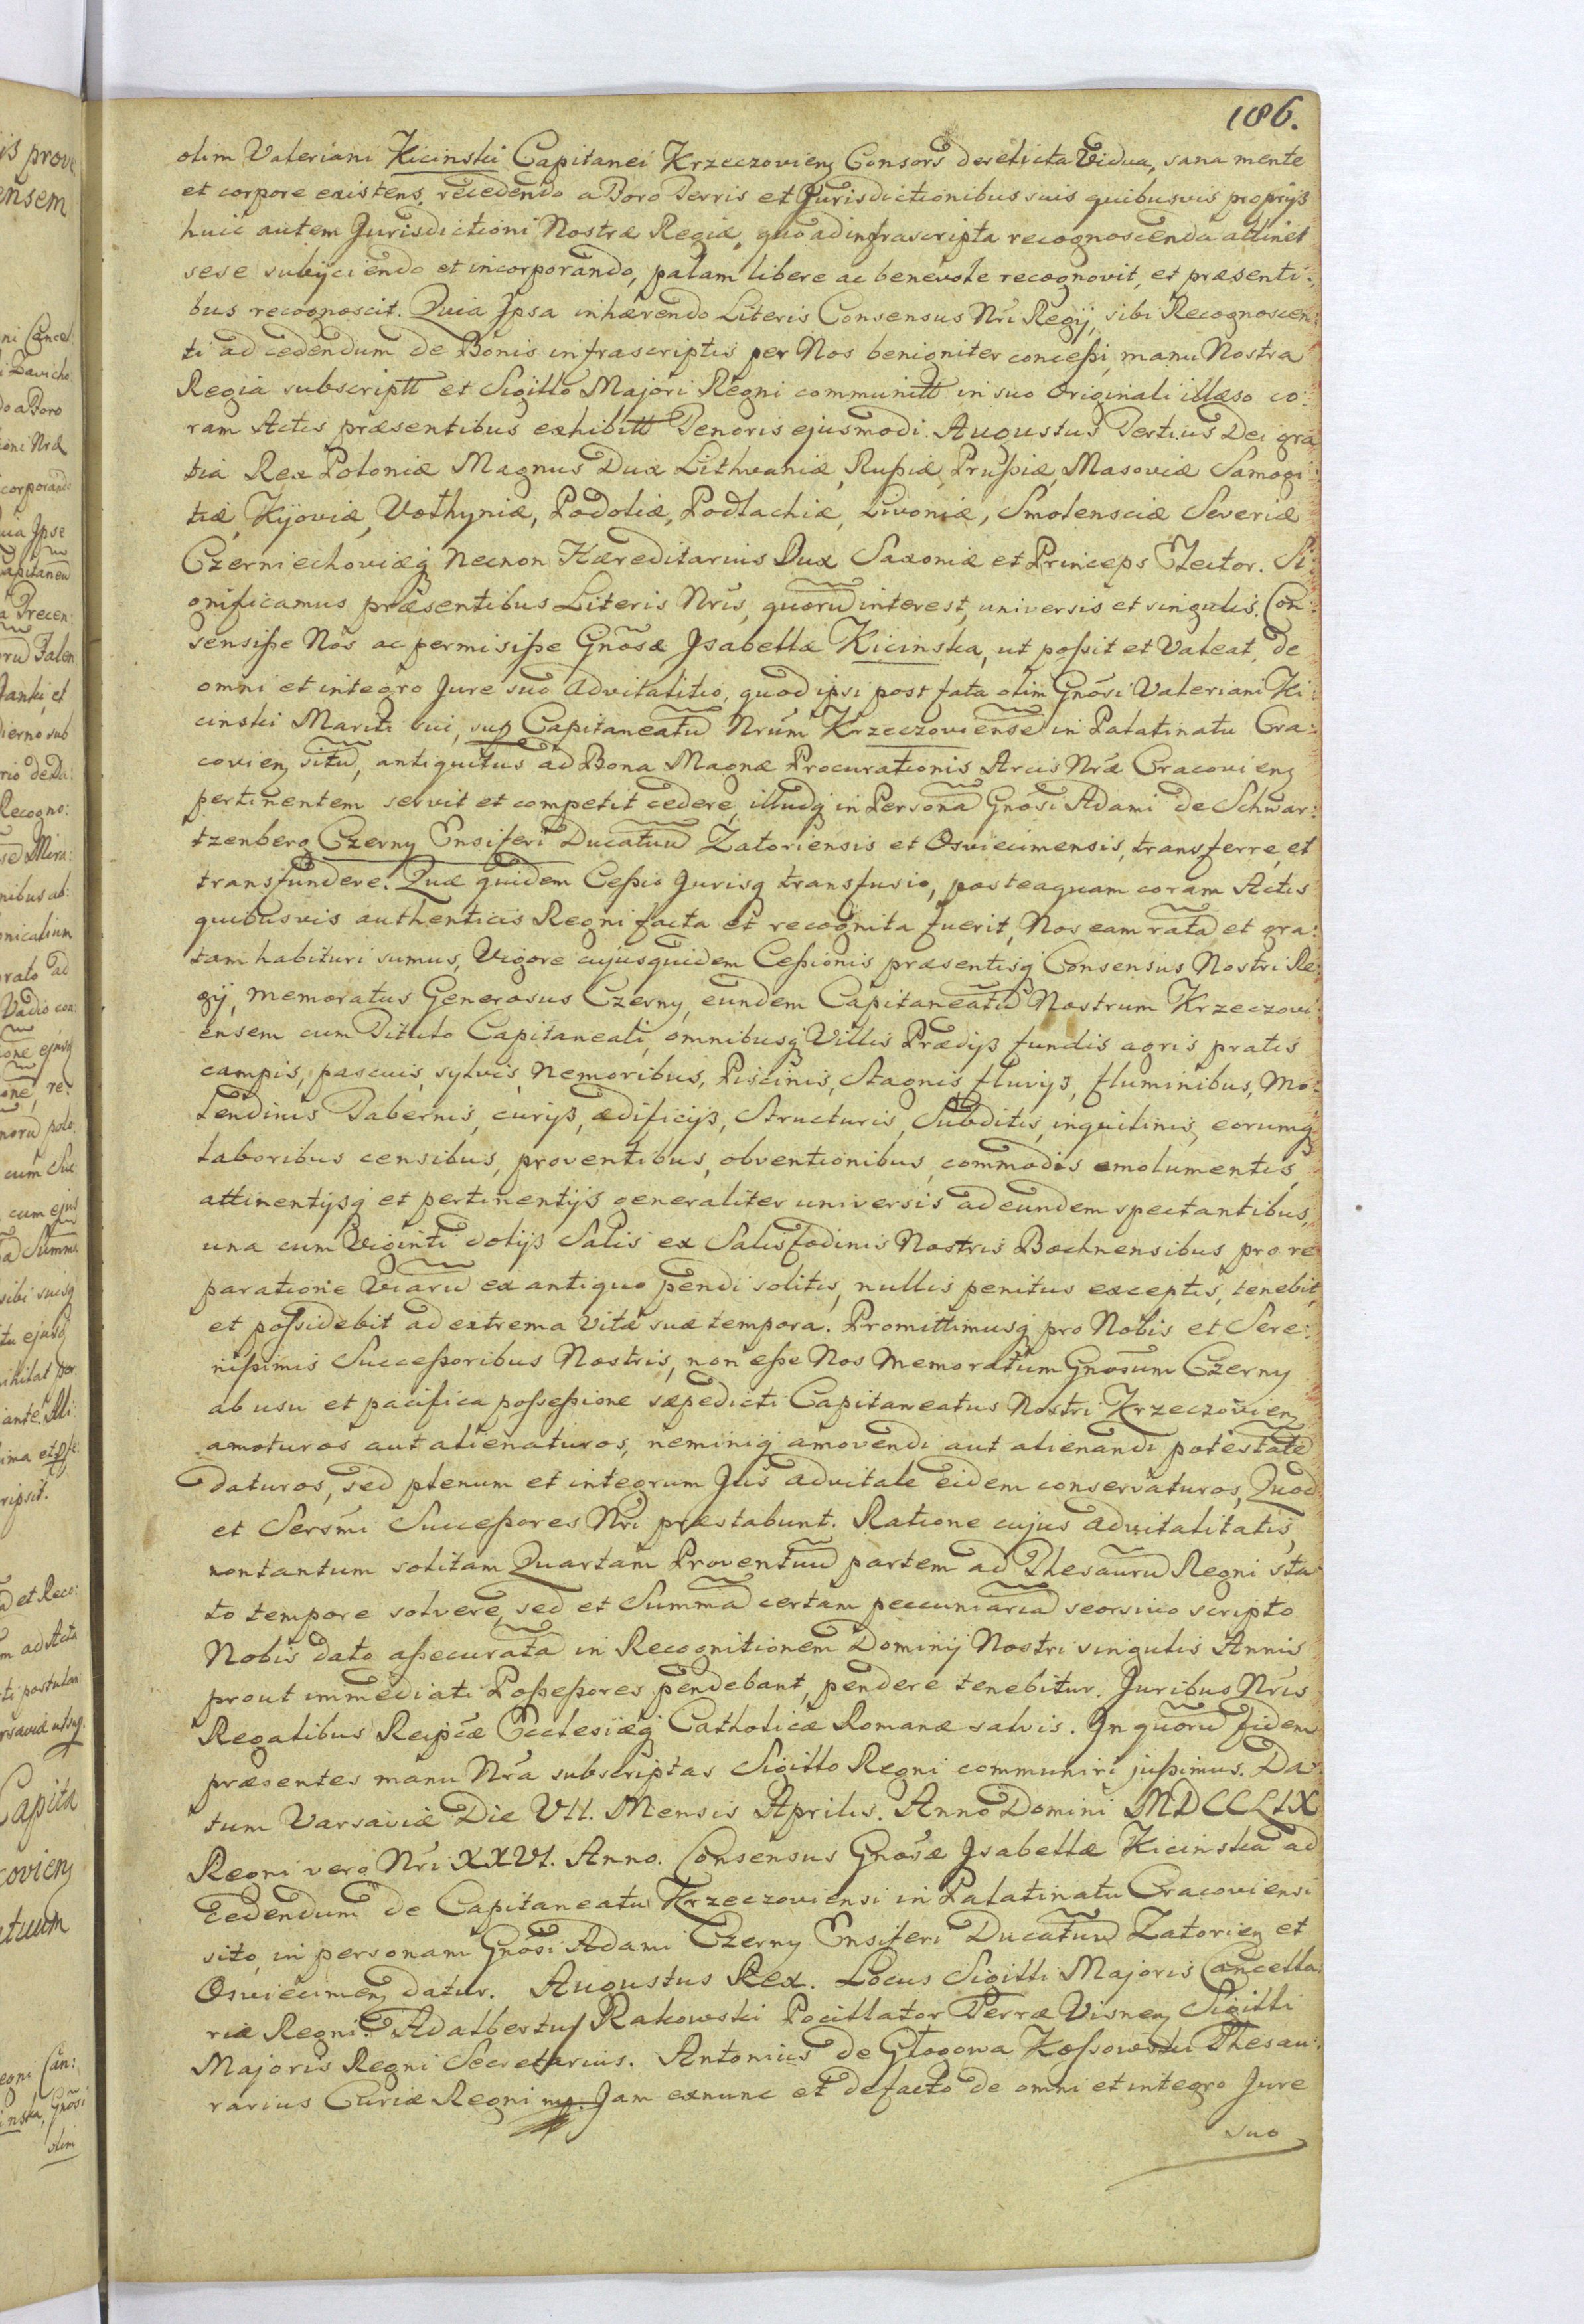 186.
olim Valeriani Kicinski Capitanei Krzeczovieng Consors derelicta Vidua, sana mente
et corpore existens, recedendo a Foro Terris et Jurisdictionibus suis quibusvis proprijs
huic autem Jurisdictioni Nostræ Regiæ, quo ad infrascripta recognoscenda attinet
sese subijciendo et incorporando, palam libere ac benevole recognovit, et præsenti:
bus recognoscit. Quia Ipsa inhærendo Literis Consensus Nri Regij, sibi Recognoscen:
ti ad cedendum de Bonis infrascriptis per Nos benigniter conceßi, manu Nostra
Regia subscriptt et Sigillo Majori Regni communitt in suo Originali illæso co:
ram Actis præsentibus exhibitt Tenoris ejusmodi. Augustus Tertius Dei gra
tia Rex Poloniæ Magnus Dux Lithvaniæ, Rußiæ, Prußiæ, Masoviæ Samogi:
tiæ, Kijoviæ, Vołhyniæ, Podoliæ, Podlachiæ, Livoniæ, Smolensciæ Severiæ
Czerniechoviæq necnon Hæreditarius Dux Saxoniæ et Princeps Elector. Si:
gnificamus præsentibus Literis Nris, quorũ interest, universis et singulis. Con:
sensiße Nos ac permisiße Gnosæ Isabellæ Kicinska, ut poßit et Valeat, de
omni et integro Jure suo Advitalitio, quod ipsi post fata olim Gnosi Valeriani Ki:
cinski Mariti sui, sup Capitaneatũ Nrum Krzeczoviense in Palatinatu Cra:
covieng sitũ, antiquitus ad Bona Magnæ Procurationis Arcis Nræ Cracovieng
pertinentem servit et competit cedere, illudq in Persona Gnosi Adami de Schwar:
tzenberg Czerny Ensiferi Ducatuũ Zatoriensis et Osviecimensis, transferre, et
transfundere. Quæ quidem Ceßio Jurisq transfusio, posteaquam coram Actis
quibusvis authenticis Regni facta et recognita fuerit, Nos eam ratã et gra:
tam habituri sumus, Vigore cujusquidem Ceßionis præsentisq Consensus Nostri Re:
gij, memoratus Generosus Czerny, eundem Capitaneatũ Nostrum Krzeczovi:
ensem cum Titulo Capitaneali, omnibusq Villis Prædijs fundis agris pratis
campis, pascuis, sylvis, nemoribus, Piscinis, Stagnis, fluvijs, fluminibus, Mo:
lendinis Tabernis, curijs, ædificijs, Structuris, Subditis, inquilinis, eorumq
laboribus censibus, proventibus, obventionibus, commodis emolumentis,
attinentijsq et pertinentijs generaliter universis ad eundem spectantibus,
una cum Viginti dolijs Salis ex Salisfodinis Nostris Bochnensibus pro re
paratione Viarũ ex antiquo pendi solitis, nullis penitus exceptis, tenebit,
et poßidebit ad extrema Vitæ suæ tempora. Promittimusq pro Nobis et Sere:
nißimis Succeßoribus Nostris, non eße Nos Memoratum Gnosum Czerny
ab usu et pacifica poßeßione sæpedicti Capitaneatus Nostri Krzeczovieng
amoturos aut alienaturos, neminiq amovendi aut alienandi potestatẽ
daturos, sed plenum et integrum Jus advitale eidem conservaturos, Quod
et Sersmi Succeßores Nri præstabunt. Ratione cujus advitalitatis,
nontantum solitam Quartam Proventuũ partem ad Thesaurũ Regni sta
to tempore solvere, sed et Summã certam peccuniariã seorsivo scripto
Nobis dato aßecuratã in Recognitionem Dominij Nostri singulis Annis
prout immediati Poßeßores pendebant, pendere tenebitur. Juribus Nris
Regalibus Reipcæ Ecclesiæq Catholicæ Romanæ salvis. In quorũ fidem
præsentes manu Nra subscriptas Sigillo Regni communiri jußimus. Da:
tum Varsaviæ Die VII. Mensis Aprilis. Anno Domini MDCCLIX
Regni vero Nri XXVI. Anno. Consensus Gnosæ Isabellæ Kicinska ad
cedendum de Capitaneatu Krzeczoviensi in Palatinatu Cracoviensi
sito, in personam Gnosi Adami Czerny Ensiferi Ducatuũ Zatorieng et
Osviecimeng datur. Augustus Rex. Locus Sigilli Majoris Cancella:
riæ Regni. Adalbertus Rakowski Pocillator Terræ Visneng Sigilli
Majoris Regni Secretarius. Antonius de Głogowa Koßowski Thesau:
rarius Curiæ Regni mp. Jam exnunc et defacto de omni et integro Jure
suo